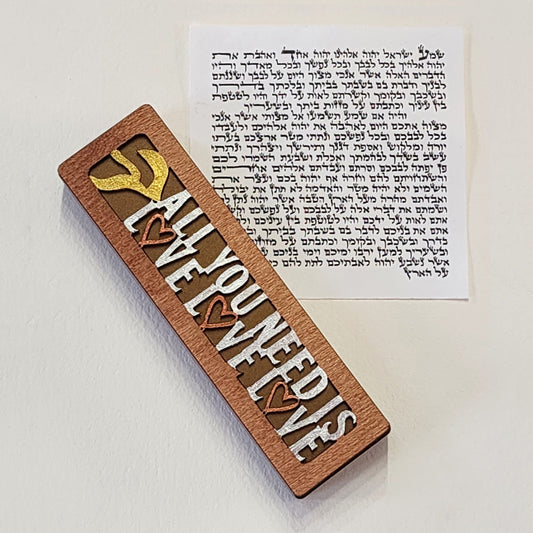 שמע ישראל יהוה אלהינו יהוה אחד ואהבת את
יהוה אלהיך בכל לבבך ובכל נפשך ובכל מאדך והיו
הדברים האלה אשר אנכי מצוך היום על לבבך ושננתם
לבניך ודברת בם בשבתך בביתך ובלכתך בדרך
ובשכבך ובקומך וקשרתם לאות על ידך והיו לטטפת
בין עיניך וכתבתם על מזזות ביתך ובשעריך
והיה אם שמע תשמעו אל מצותי אשר אנכי
מצוה אתכם היום לאהבה את יהוה אלהיכם ולעבדו
בכל לבבכם ובכל נפשכם ונתתי מטר ארצכם בעתו
יורה ומלקוש ואספת דגנך ותירשך ויצהרך ונתתי
עשב בשדך לבהמתך ואכלת ושבעת השמרו לכם
פן יפתה לבבכם וסרתם ועבדתם אלהים אחרים
והשתחויתם להם וחרה אף יהוה בכם ועצר את
השמים ולא יהיה מטר והאדמה לא תתן את יבולה
ואבדתם מהרה מעל הארץ הטבה אשר יהוה נתן
ושמתם את דברי אלה על לבבכם ועל נפשכם
אתם לאות על ידכם והיו לטוטפת בין עיניכם
אתם את בניכם לדבר בם בשבתך בביתך
בדרך ובשכבך ובקומך וכתבתם על מזוזות
ובשעריך למען ירבו ימיכם וימי בניכם על
אשר נשבע יהוה לאבתיכם לתת להם
על הארץ
ש
ALL YOU NEED IS
LOVE LOVE LOVE